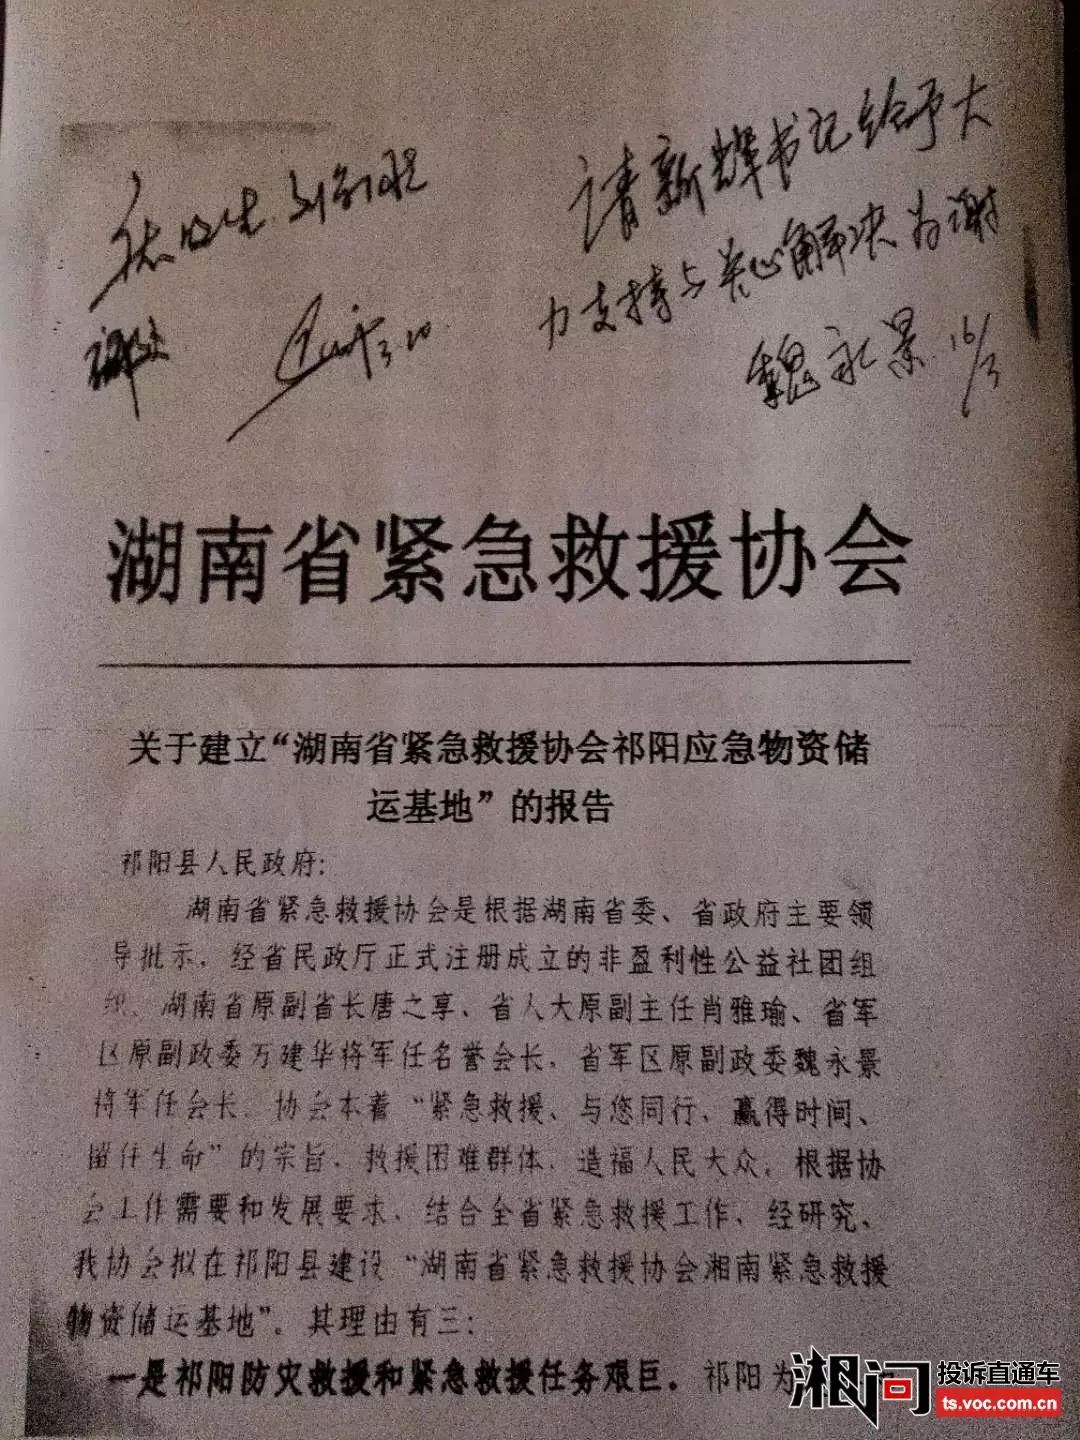 请新辉书记给予大
力支持与关心解决为谢
魏永景 16/3
湖南省紧急救援协会
关于建立“湖南省紧急救援协会祁阳应急物资储
运基地”的报告
祁阳县人民政府:
湖南省紧急救援协会是根据湖南省委、省政府主要领
导批示，经省民政厅正式注册成立的非盈利性公益社团组
织。湖南省原副省长唐之享、省人大原副主任肖雅瑜、省军
区原副政委万建华将军任名誉会长，省军区原副政委魏永景
将军任会长。协会本着“紧急救援、与您同行、赢得时间、
留住生命”的宗旨，救援困难群体，造福人民大众，根据协
会工作需要和发展要求，结合全省紧急救援工作，经研究、
我协会拟在祁阳县建设“湖南省紧急救援协会湘南紧急救援
物资储运基地”。其理由有三:
一是祁阳防灾救援和紧急救援任务艰巨。祁阳为
湘问
投诉直通车
ts.voc.com.cn